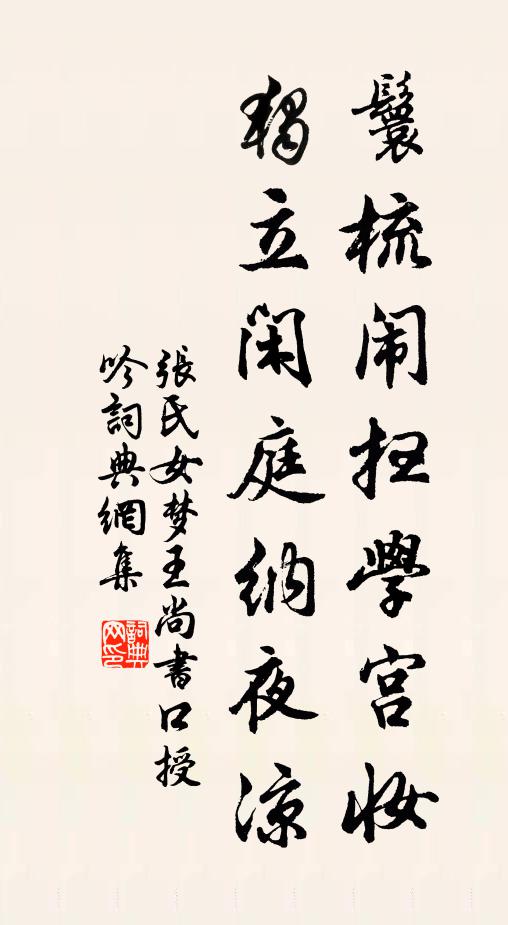 鬟梳闹扫學宫妝
獨立閑庭納夜凉
張氏女梦王尚書口授
吟詞典網集
詞典网印